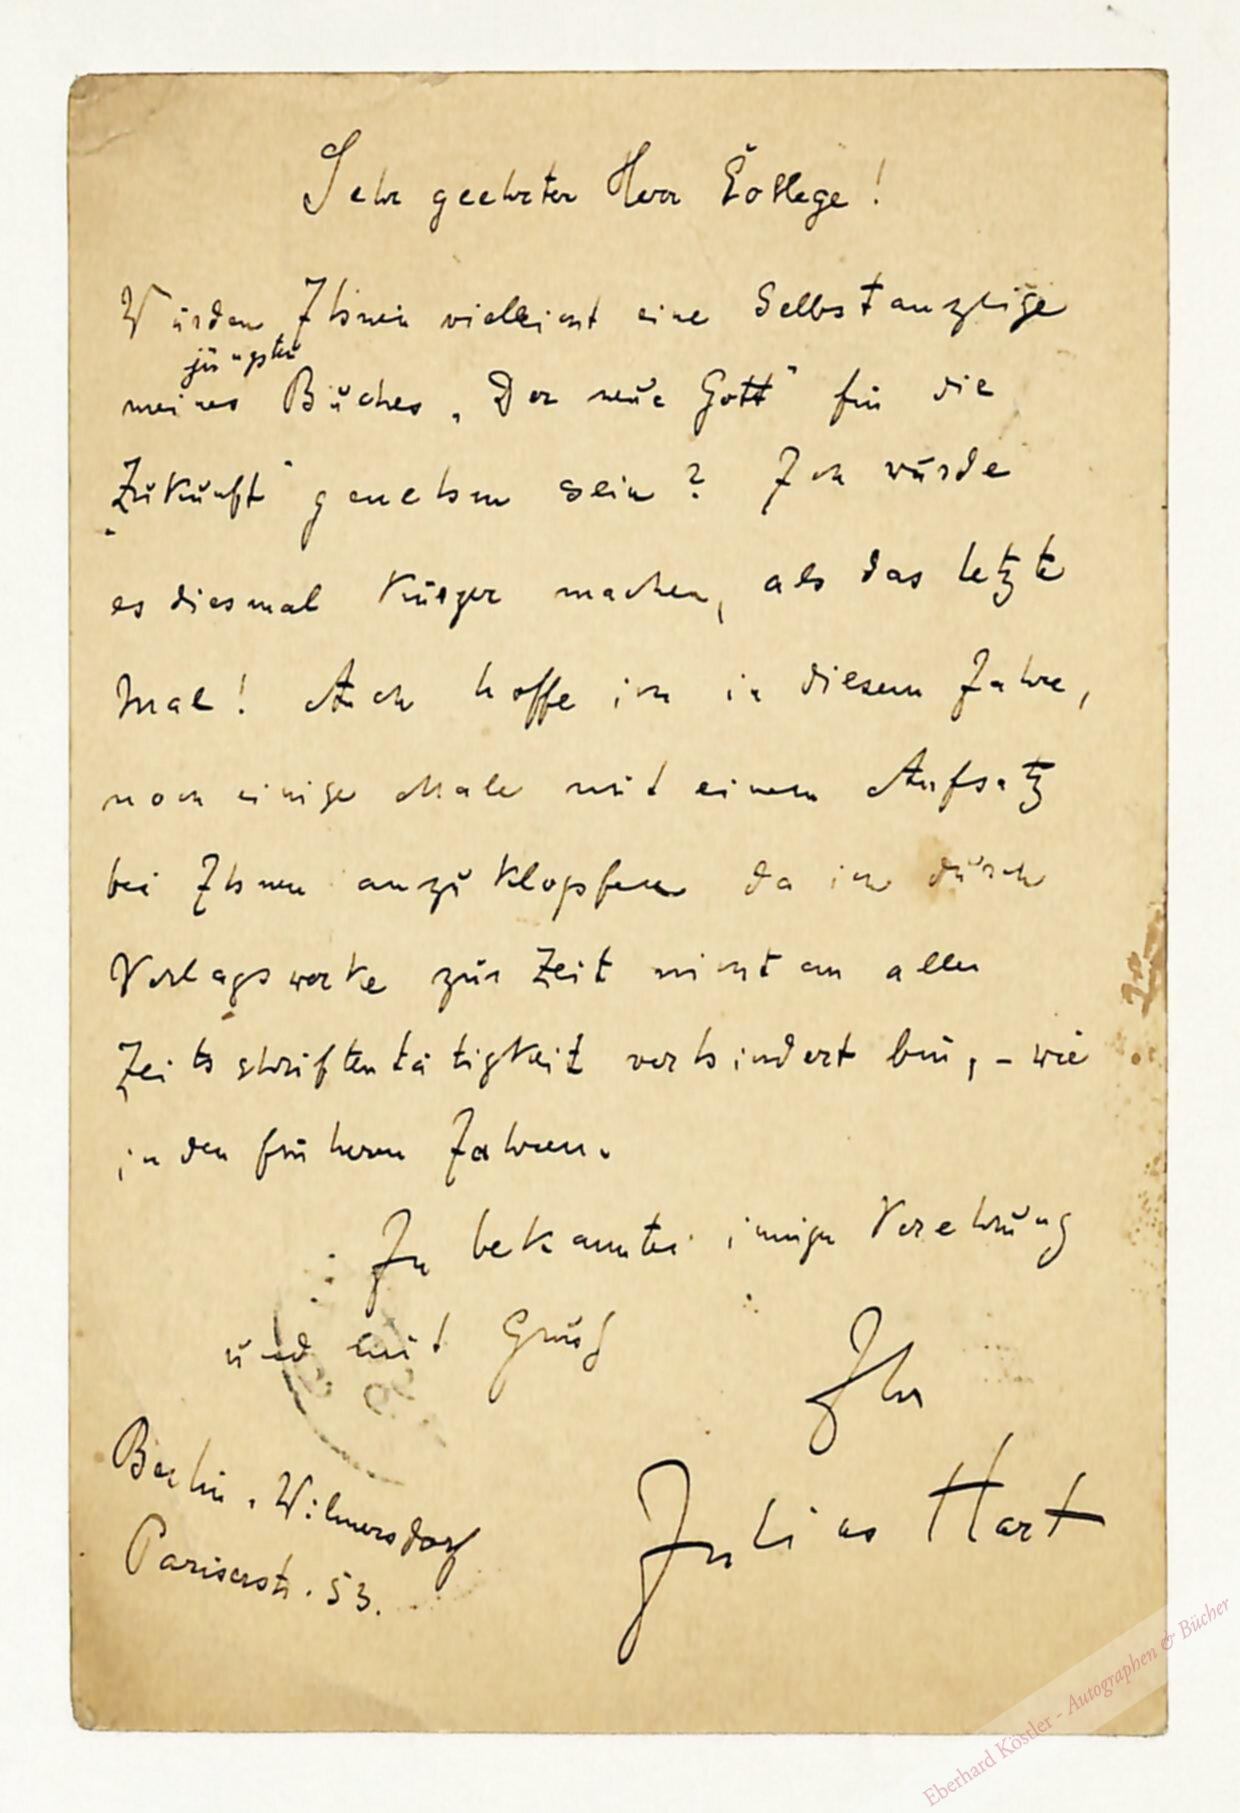 Sehr geehrter Herr College!
Würden Ihnen vielleicht eine Selbstanzeige
jüngsten
meines Buches „Der neue Gott" für die
„Zukunft" genehm sein? Ich würde
es diesmal kürzer machen, als das letzte
Mal! Auch hoffe ich in diesem Jahre,
noch einige Male mit einem Aufsatz
bei Ihnen anzuklopfen da ich durch
Verlagswerke zur Zeit nicht an aller
Zeitschriftentätigkeit verhindert bin, – wie
in den frühern Jahren.
In bekannter inniger Verehrung
und mit Gruß
Ihr
Julius Hart
Berlin. Wilmersdorf
Pariserstr. 53.
Eberhard Köstler - Autographen & Bücher